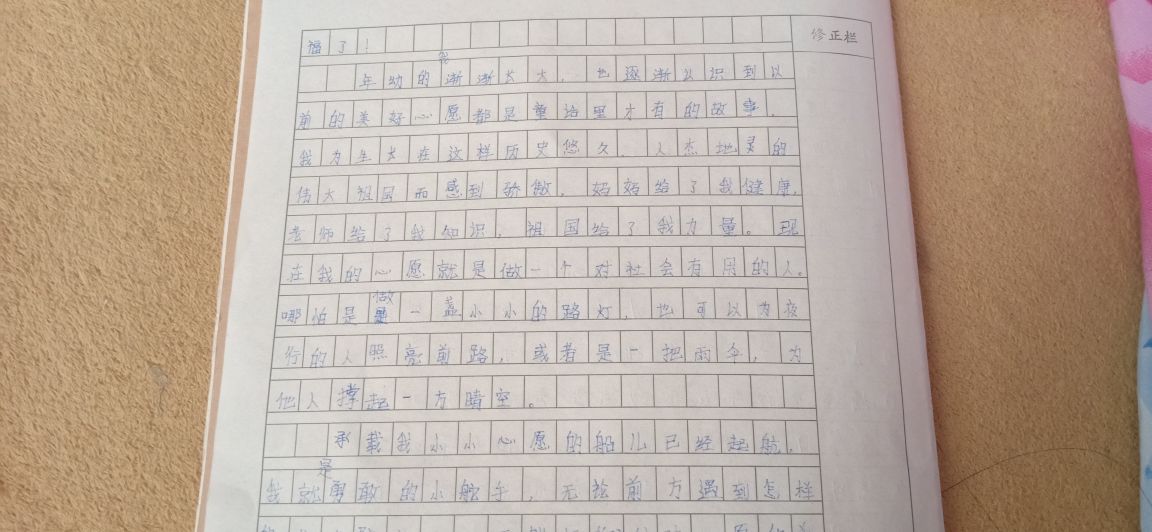 修正栏
福了！
年幼的我渐渐长大，也逐渐认识到以
前的美好心愿都是童话里才有的故事，
我为生长在这样历史悠久，人杰地灵的
伟大祖国而感到骄傲，妈妈给了我健康，
老师给了我知识，祖国给了我力量。现
在我的心愿就是做一个对社会有用的人。
哪怕是做一盏小小的路灯，也可以为夜
行的人照亮前路，或者是一把雨伞，为
他人撑起一方晴空。
承载我小小心愿的船儿已经起航，
我就是勇敢的小舵手，无论前方遇到怎样